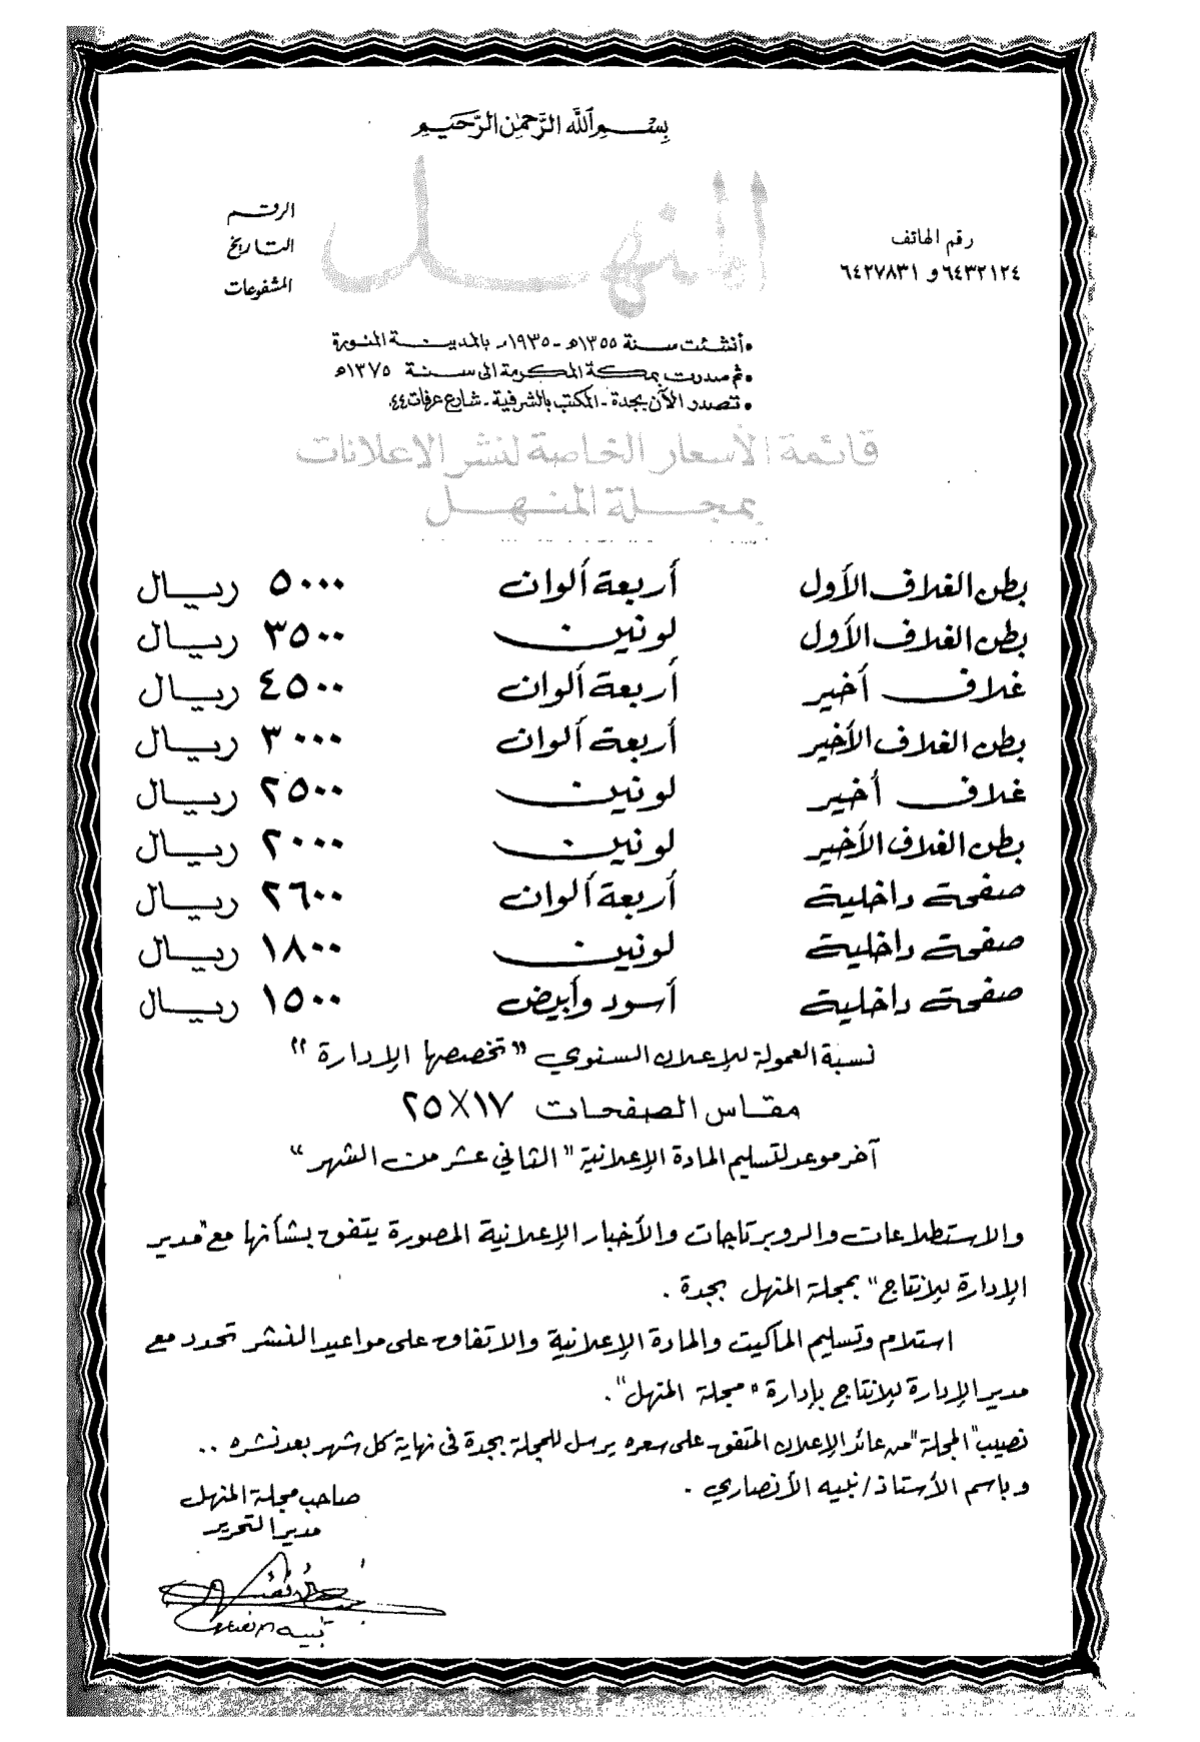 بِسْمِ ٱللَّهِ الرَّحْمٰنِ الرَّحِيمِ
المنهل
رقم الهاتف
٦٤٣٢١٢٤ و ٦٤٢٧٨٣١
الرقم
التاريخ
المشفوعات
• أنشئت سنة ١٣٥٥هـ - ١٩٣٥م بالمدينة المنورة
• ثم صدرت بمكة المكرمة الى سنة ١٣٧٥هـ
• تصدر الآن بجدة - المكتب بالشرفية - شارع عرفات ٤٤
قائمة الأسعار الخاصة لنشر الإعلانات
بمجلة المنهل
بطن الغلاف الأول أربعة ألوان ٥٠٠٠ ريال
بطن الغلاف الأول لونين ٣٥٠٠ ريال
غلاف أخير أربعة ألوان ٤٥٠٠ ريال
بطن الغلاف الأخير أربعة ألوان ٣٠٠٠ ريال
غلاف أخير لونين ٢٥٠٠ ريال
بطن الغلاف الأخير لونين ٢٠٠٠ ريال
صفحة داخلية أربعة ألوان ٢٦٠٠ ريال
صفحة داخلية لونين ١٨٠٠ ريال
صفحة داخلية أسود وأبيض ١٥٠٠ ريال
نسبة العمولة للإعلان السنوي "تخصصها الإدارة"
مقاس الصفحات ١٧×٢٥
آخر موعد لتسليم المادة الإعلانية "الثاني عشر من الشهر"
والاستطلاعات والروبرتاجات والأخبار الإعلانية المصورة يتفق بشأنها مع "مدير
الإدارة للإنتاج" بمجلة المنهل بجدة .
استلام وتسليم الماكيت والمادة الإعلانية والاتفاق على مواعيد النشر تحدد مع
مدير الإدارة للإنتاج بإدارة "مجلة المنهل" .
نصيب "المجلة" من عائد الإعلان المتفق على سعره يرسل للمجلة بجدة في نهاية كل شهر بعد نشره ..
وباسم الأستاذ / نبيه الأنصاري .
صاحب مجلة المنهل
مدير التحرير
نبيه الأنصاري